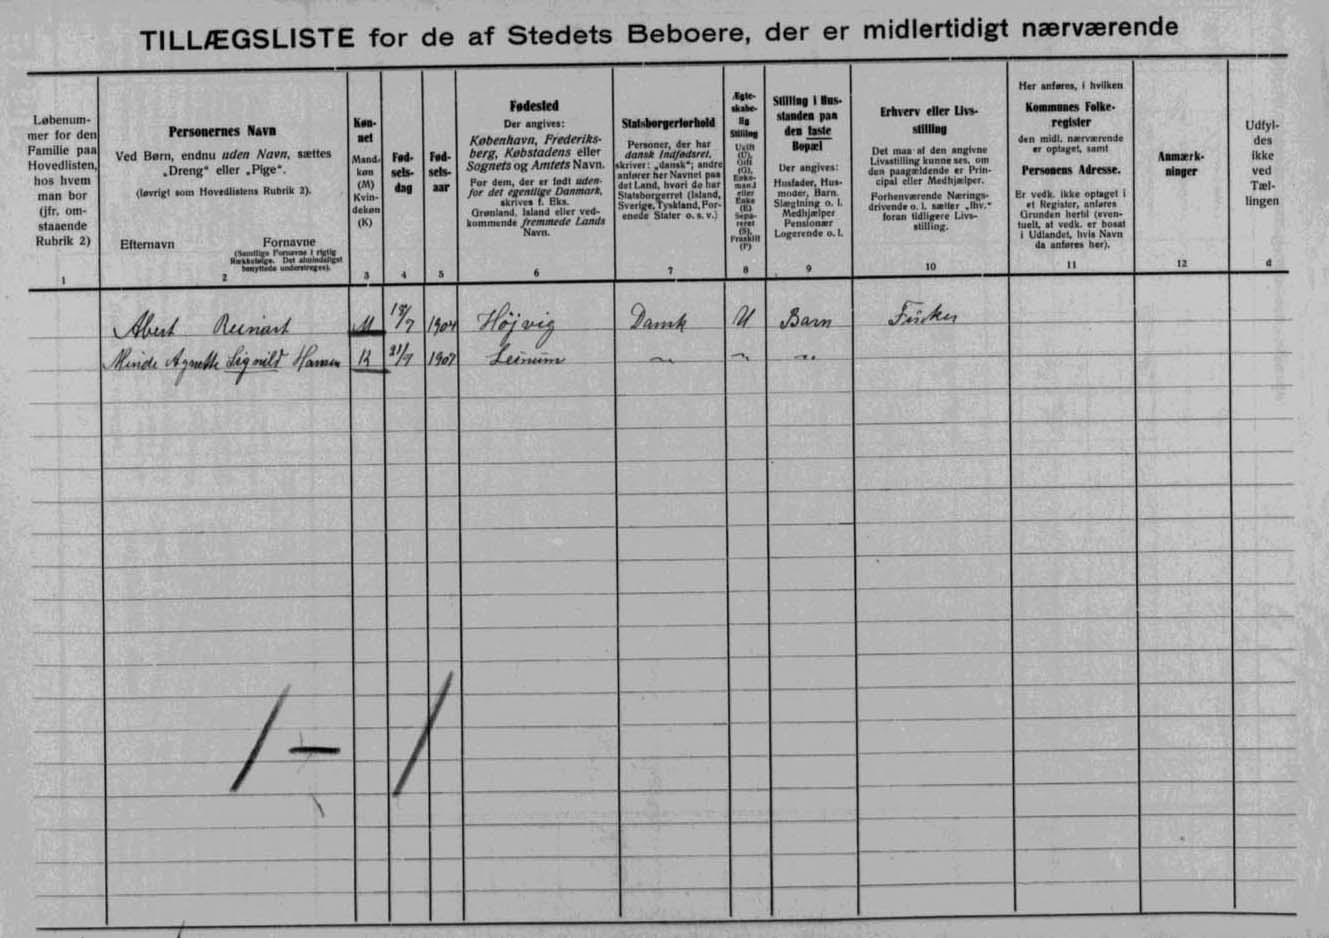 TILLÆGSLISTE for de af Stedets Beboere, der er midlertidigt nærværende
Løbenum-
mer for den
Familie paa
Hovedlisten,
hos hvem
man bor
(jfr. om-
staaende
Rubrik 2)
1
Personernes Navn
Ved Børn, endnu uden Navn, sættes
„Dreng“ eller „Pige“.
(Iøvrigt som Hovedlistens Rubrik 2).
Efternavn Fornavne
(Samtlige Fornavne i rigtig
Rækkefølge. Det almindeligst
benyttede understreges).
2
Køn-
net
Mand-
køn
(M)
Kvin-
dekøn
(K)
3
Fød-
sels-
dag
4
Fød-
sels-
aar
5
Fødested
Der angives:
København, Frederiks-
berg, Købstadens eller
Sognets og Amtets Navn.
For dem, der er født uden-
for det egentlige Danmark,
skrives f. Eks.
Grønland, Island eller ved-
kommende fremmede Lands
Navn.
6
Statsborgerforhold
Personer, der har
dansk Indfødsret,
skriver: „dansk“; andre
anfører her Navnet paa
det Land, hvori de har
Statsborgerret (Island,
Sverige, Tyskland, For-
enede Stater o. s. v.)
7
Ægte-
skabe-
lig
Stilling
Ugift
(U),
Gift
(G),
Enke-
mand
eller
Enke
(E)
Sepa-
reret
(S),
Fraskilt
(F)
8
Stilling i Hus-
standen paa
den faste
Bopæl
Der angives:
Husfader, Hus-
moder, Barn,
Slægtning o. l.
Medhjælper
Pensionær
Logerende o. l.
9
Erhverv eller Livs-
stilling
Det maa af den angivne
Livsstilling kunne ses, om
den paagældende er Prin-
cipal eller Medhjælper.
Forhenværende Nærings-
drivende o. l. sætter „fhv.“
foran tidligere Livs-
stilling.
10
Her anføres, i hvilken
Kommunes Folke-
register
den midl. nærværende
er optaget, samt
Personens Adresse.
Er vedk. ikke optaget i
et Register, anføres
Grunden hertil (even-
tuelt, at vedk. er bosat
i Udlandet, hvis Navn
da anføres her).
11
Anmærk-
ninger
12
Udfyl-
des
ikke
ved
Tæl-
lingen
d
Abert Reinart M 13/7 1904 Højvig Dansk U Barn
Minde Agnethe Signild Hansen K 21/7 1907 Leinum 〃 〃 〃
/ — /